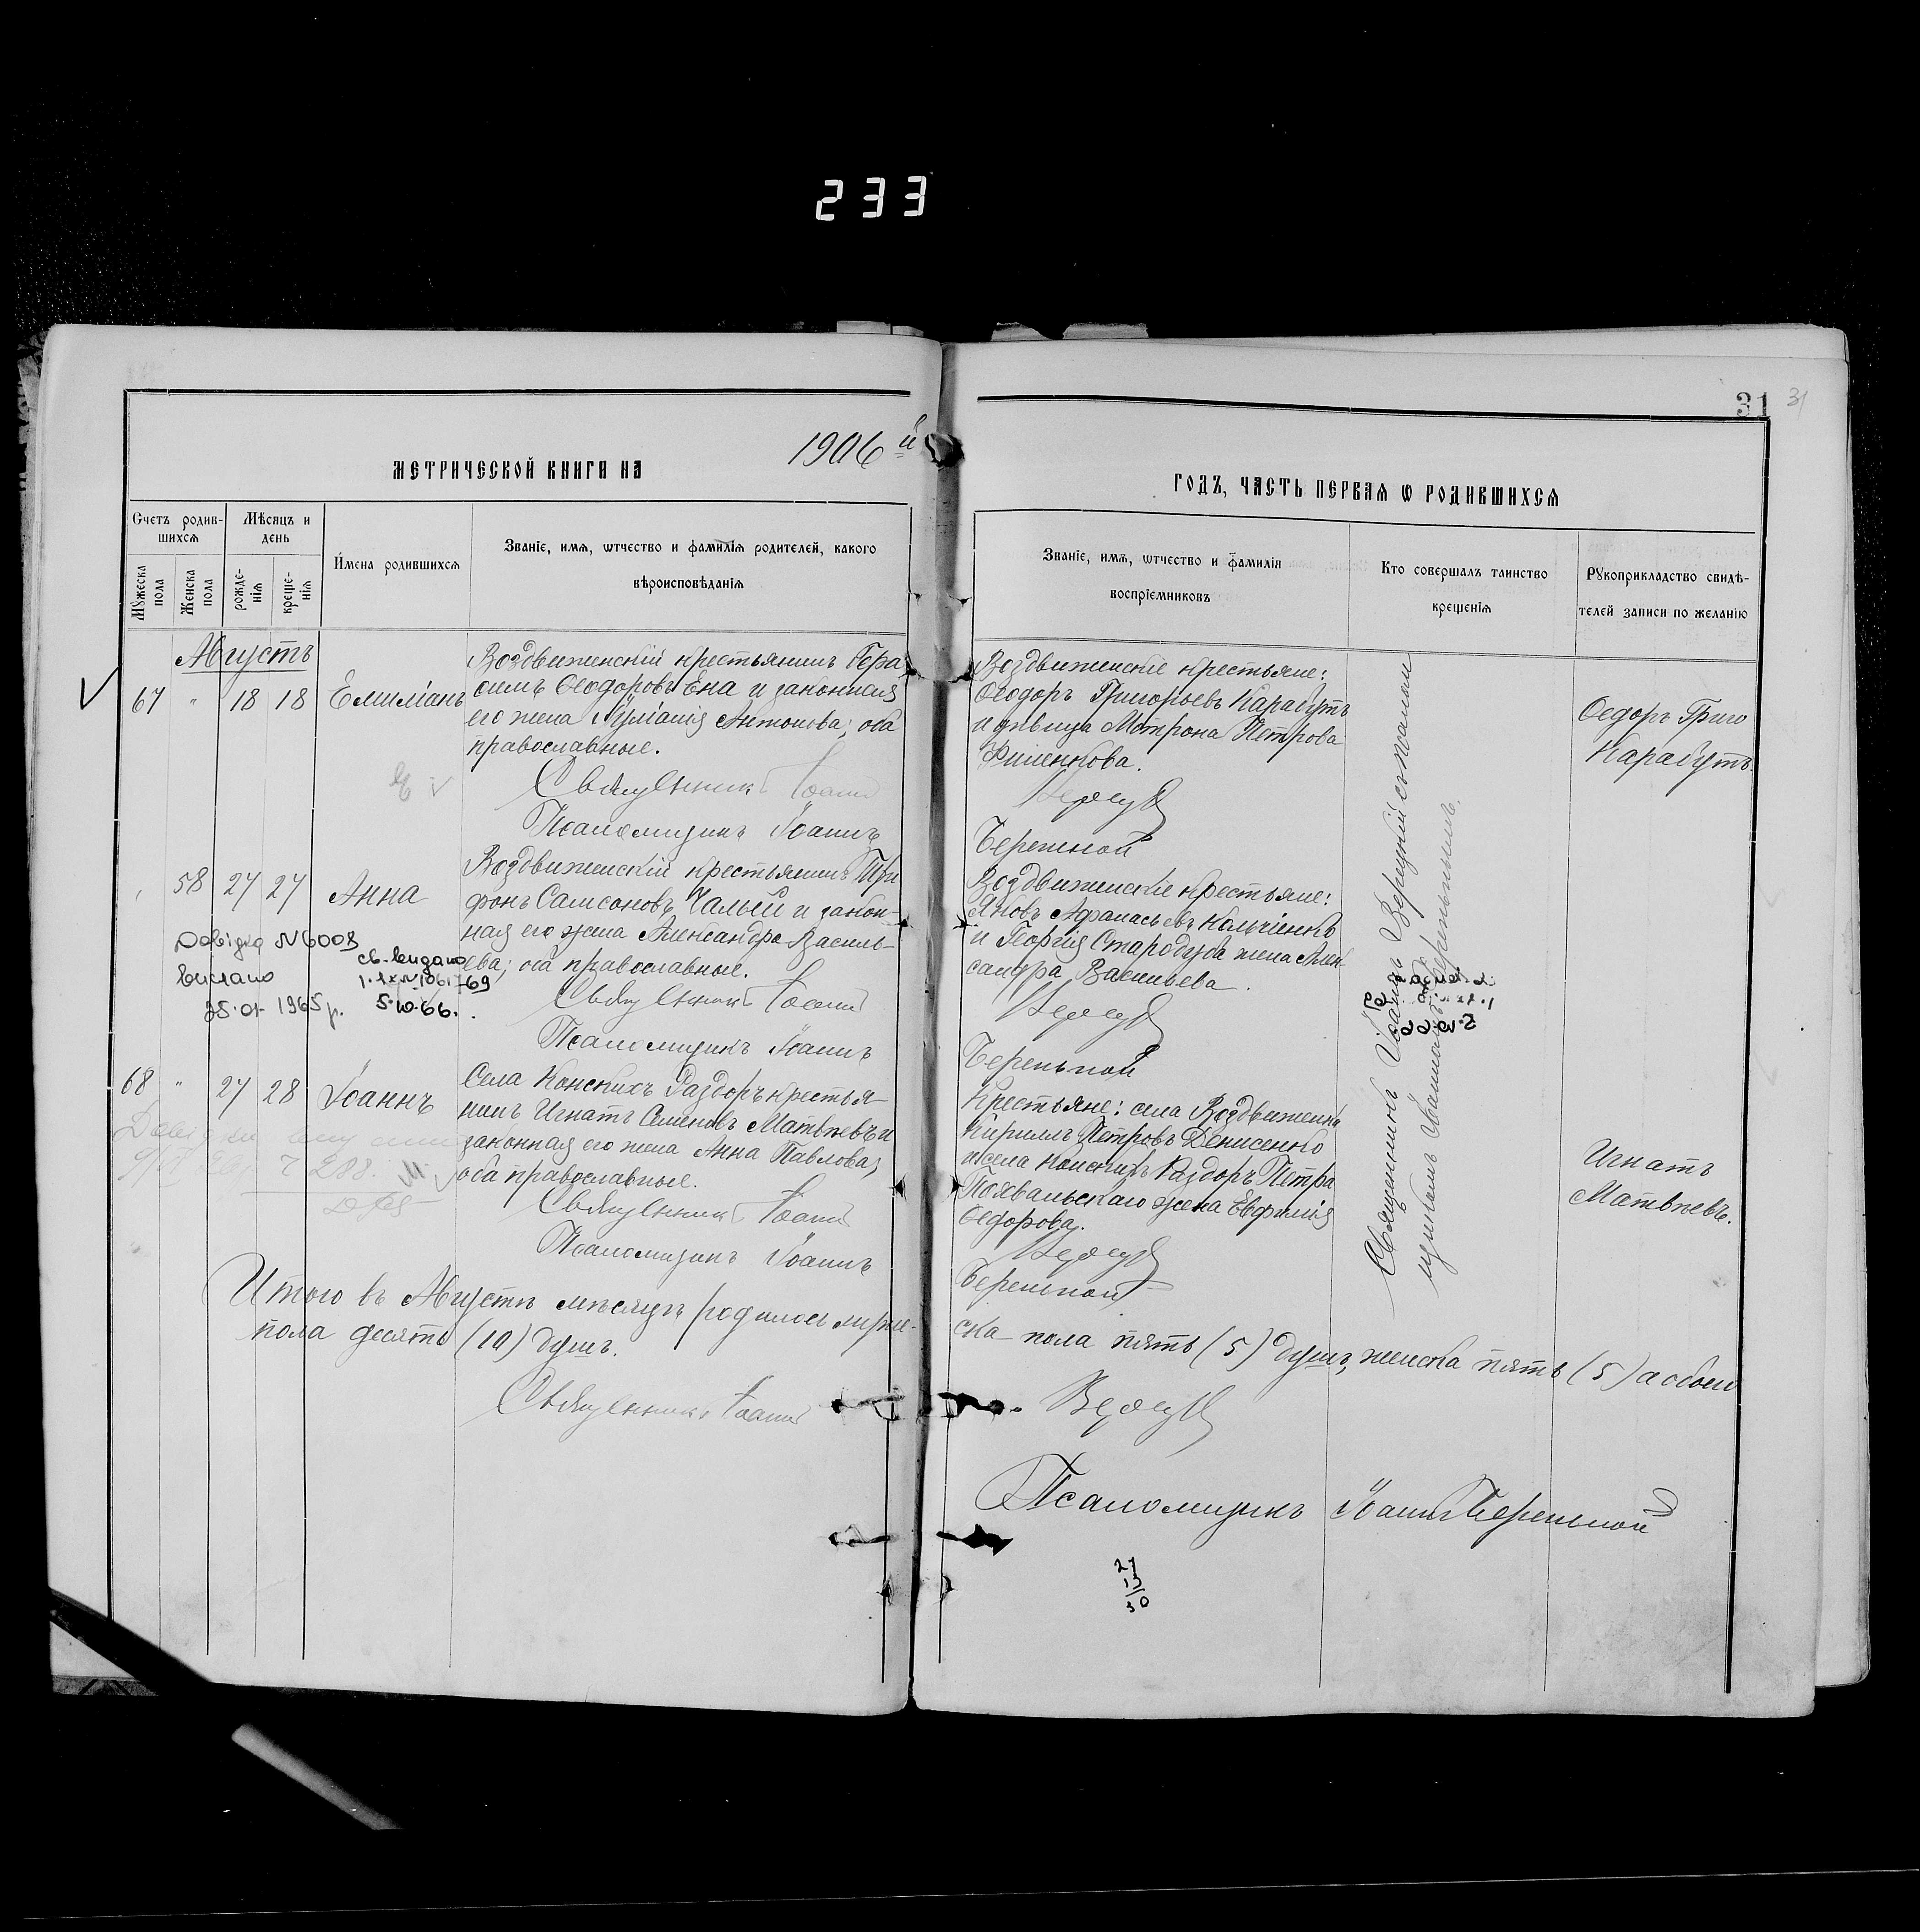 233
31
31
МЕТРИЧЕСКОЙ КНИГИ НА 1906 й
ГОДЪ, ЧАСТЬ ПЕРВАЯ Ѡ РОДИВШИХСЯ
Счетъ родив-
шихся
Мѣсяцъ и
день
Мꙋжеска
пола
Женска
пола
рожде-
нія
креще-
нія
Имена родившихся
Званіе, имя, ѡтчество и фамилія родителей, какого
вѣроисповѣданія
Званіе, имя, ѡтчество и фамилія
воспріемниковъ
Кто совершалъ таинство
крещенія
Рꙋкоприкладство свидѣ-
телей записи по желанію
Августъ
67 " 18 18 Емиліанъ
Воздвиженскій крестьянинъ Гера
симъ Ѳеодоровъ Ена и законная
его жена Іуліанія Антонова; оба
православные.
Священникъ Іоаннъ
Псаломщикъ Іоаннъ
Воздвиженскіе крестьяне:
Ѳеодоръ Григорьевъ Карабутъ
и дѣвица Мотрона Петрова
Филенкова.
Бережной
Ѳедоръ Григо
Карабутъ.
58 27 27 Анна
Воздвиженскій крестьянинъ Три
фонъ Самсоновъ Чалый и закон-
ная его жена Александра Василь-
ева; оба православные.
Священникъ Іоаннъ
Псаломщикъ Іоаннъ
Довідка N 6008
видано
1965 р.
св. видано
69
5.10.66.
Воздвиженскіе крестьяне:
Яковъ Аѳанасьевъ Кальченко
и Георгія Стародуба жена Алек-
сандра Васильева.
Бережной
68 " 27 28 Іоаннъ
Села Конскихъ Раздоръ крестья-
нинъ Игнатъ Семеновъ Матвѣевъ и
законная его жена Анна Павлова;
оба православные.
Священникъ Іоаннъ
Псаломщикъ Іоаннъ
Крестьяне: села Воздвиженки
Кириллъ Петровъ Денисенко
и села Конскихъ Раздоръ Петра
Похвальскаго жена Евфимія
Ѳедорова.
Бережной
Игнатъ
Матвѣевъ.
Священникъ Іоаннъ Верецкій съ псалом
щикомъ Іоанномъ Бережнымъ.
Итого въ Августѣ мѣсяцѣ родилось муже-
ска пола пять (5) душъ, женска пять (5) а обоего
пола десять (10) душъ.
Священникъ Іоаннъ
Псаломщикъ Іоаннъ Бережной